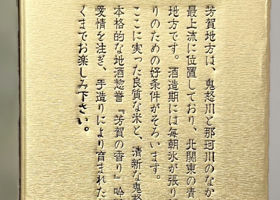 芳賀地方は、鬼怒川と那珂川のなか
最上流に位置しており、北関東の青
地方です。酒造期には毎朝氷が張り
りのための好条件がそろいます。
ここに実った良質な米と、清新な鬼怒
本格的な地酒惣誉『芳賀の香り』吟
愛情を注ぎ、手造りにより育まれた
くまでお楽しみ下さい。